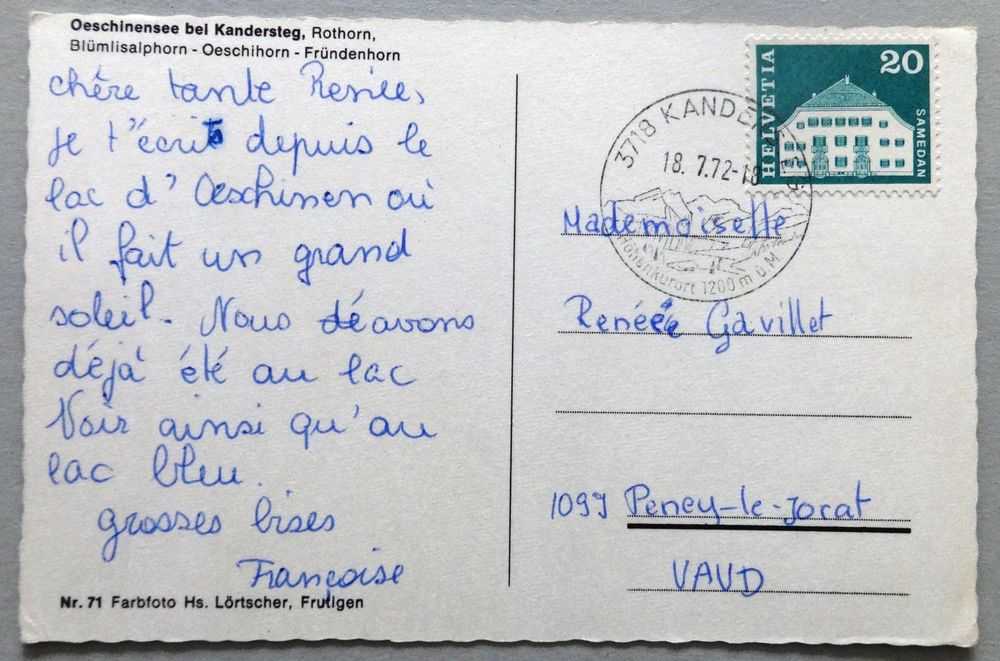 Oeschinensee bei Kandersteg, Rothorn,
Blümlisalphorn - Oeschihorn - Fründenhorn
chère tante Renée,
je t'écris depuis le
lac d'Oeschinen où
il fait un grand
soleil. Nous avons
déjà été au lac
Noir ainsi qu'au
lac bleu.
grosses bises
Françoise
Nr. 71 Farbfoto Hs. Lörtscher, Frutigen
HELVETIA
20
SAMEDAN
3718 KANDERSTEG
18.7.72-18
Höhenkurort 1200 m ü M
Mademoiselle
Renée Gavillet
1099 Peney-le-Jorat
VAUD